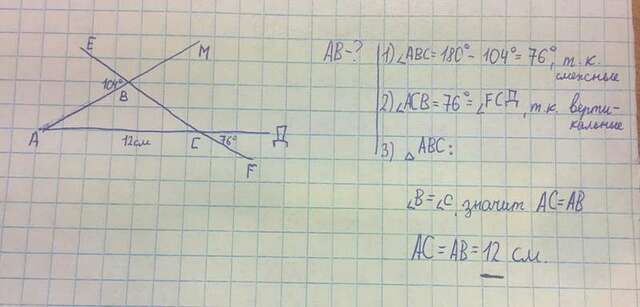 E
M
104°
B
A
12см
C
76°
Д
F
AB-?
1) ∠ABC = 180° - 104° = 76°, т.к.
смежные
2) ∠ACB = 76° = ∠FCД, т.к. верти-
кальные
3) △ABC:
∠B = ∠C, значит AC = AB
AC = AB = 12 см.